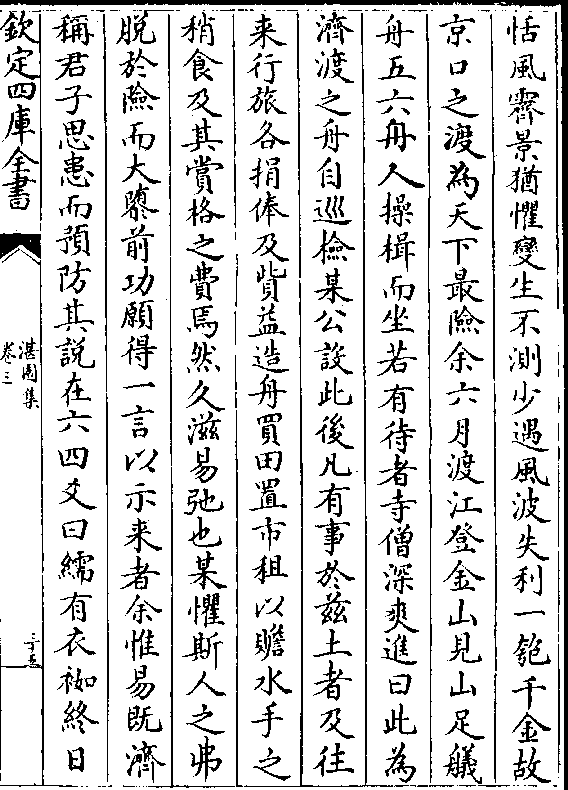 恬風霽景猶懼變生不測少遇風波失利一瓠千金故
京口之渡為天下最險余六月渡江登金山見山足艤
舟五六舟人操楫而坐若有待者寺僧深爽進曰此為
濟渡之舟自巡檢某公設此後凡有事於兹土者及往
来行旅各捐俸及貲益造舟買田置市租以贍水手之
稍食及其賞格之費焉然久滋易弛也某懼斯人之弗
脱於險而大隳前功願得一言以示来者余惟易既濟
稱君子思患而預防其說在六四爻曰繻有衣袽終日
欽定四庫全書
湛園集
卷三
三十五